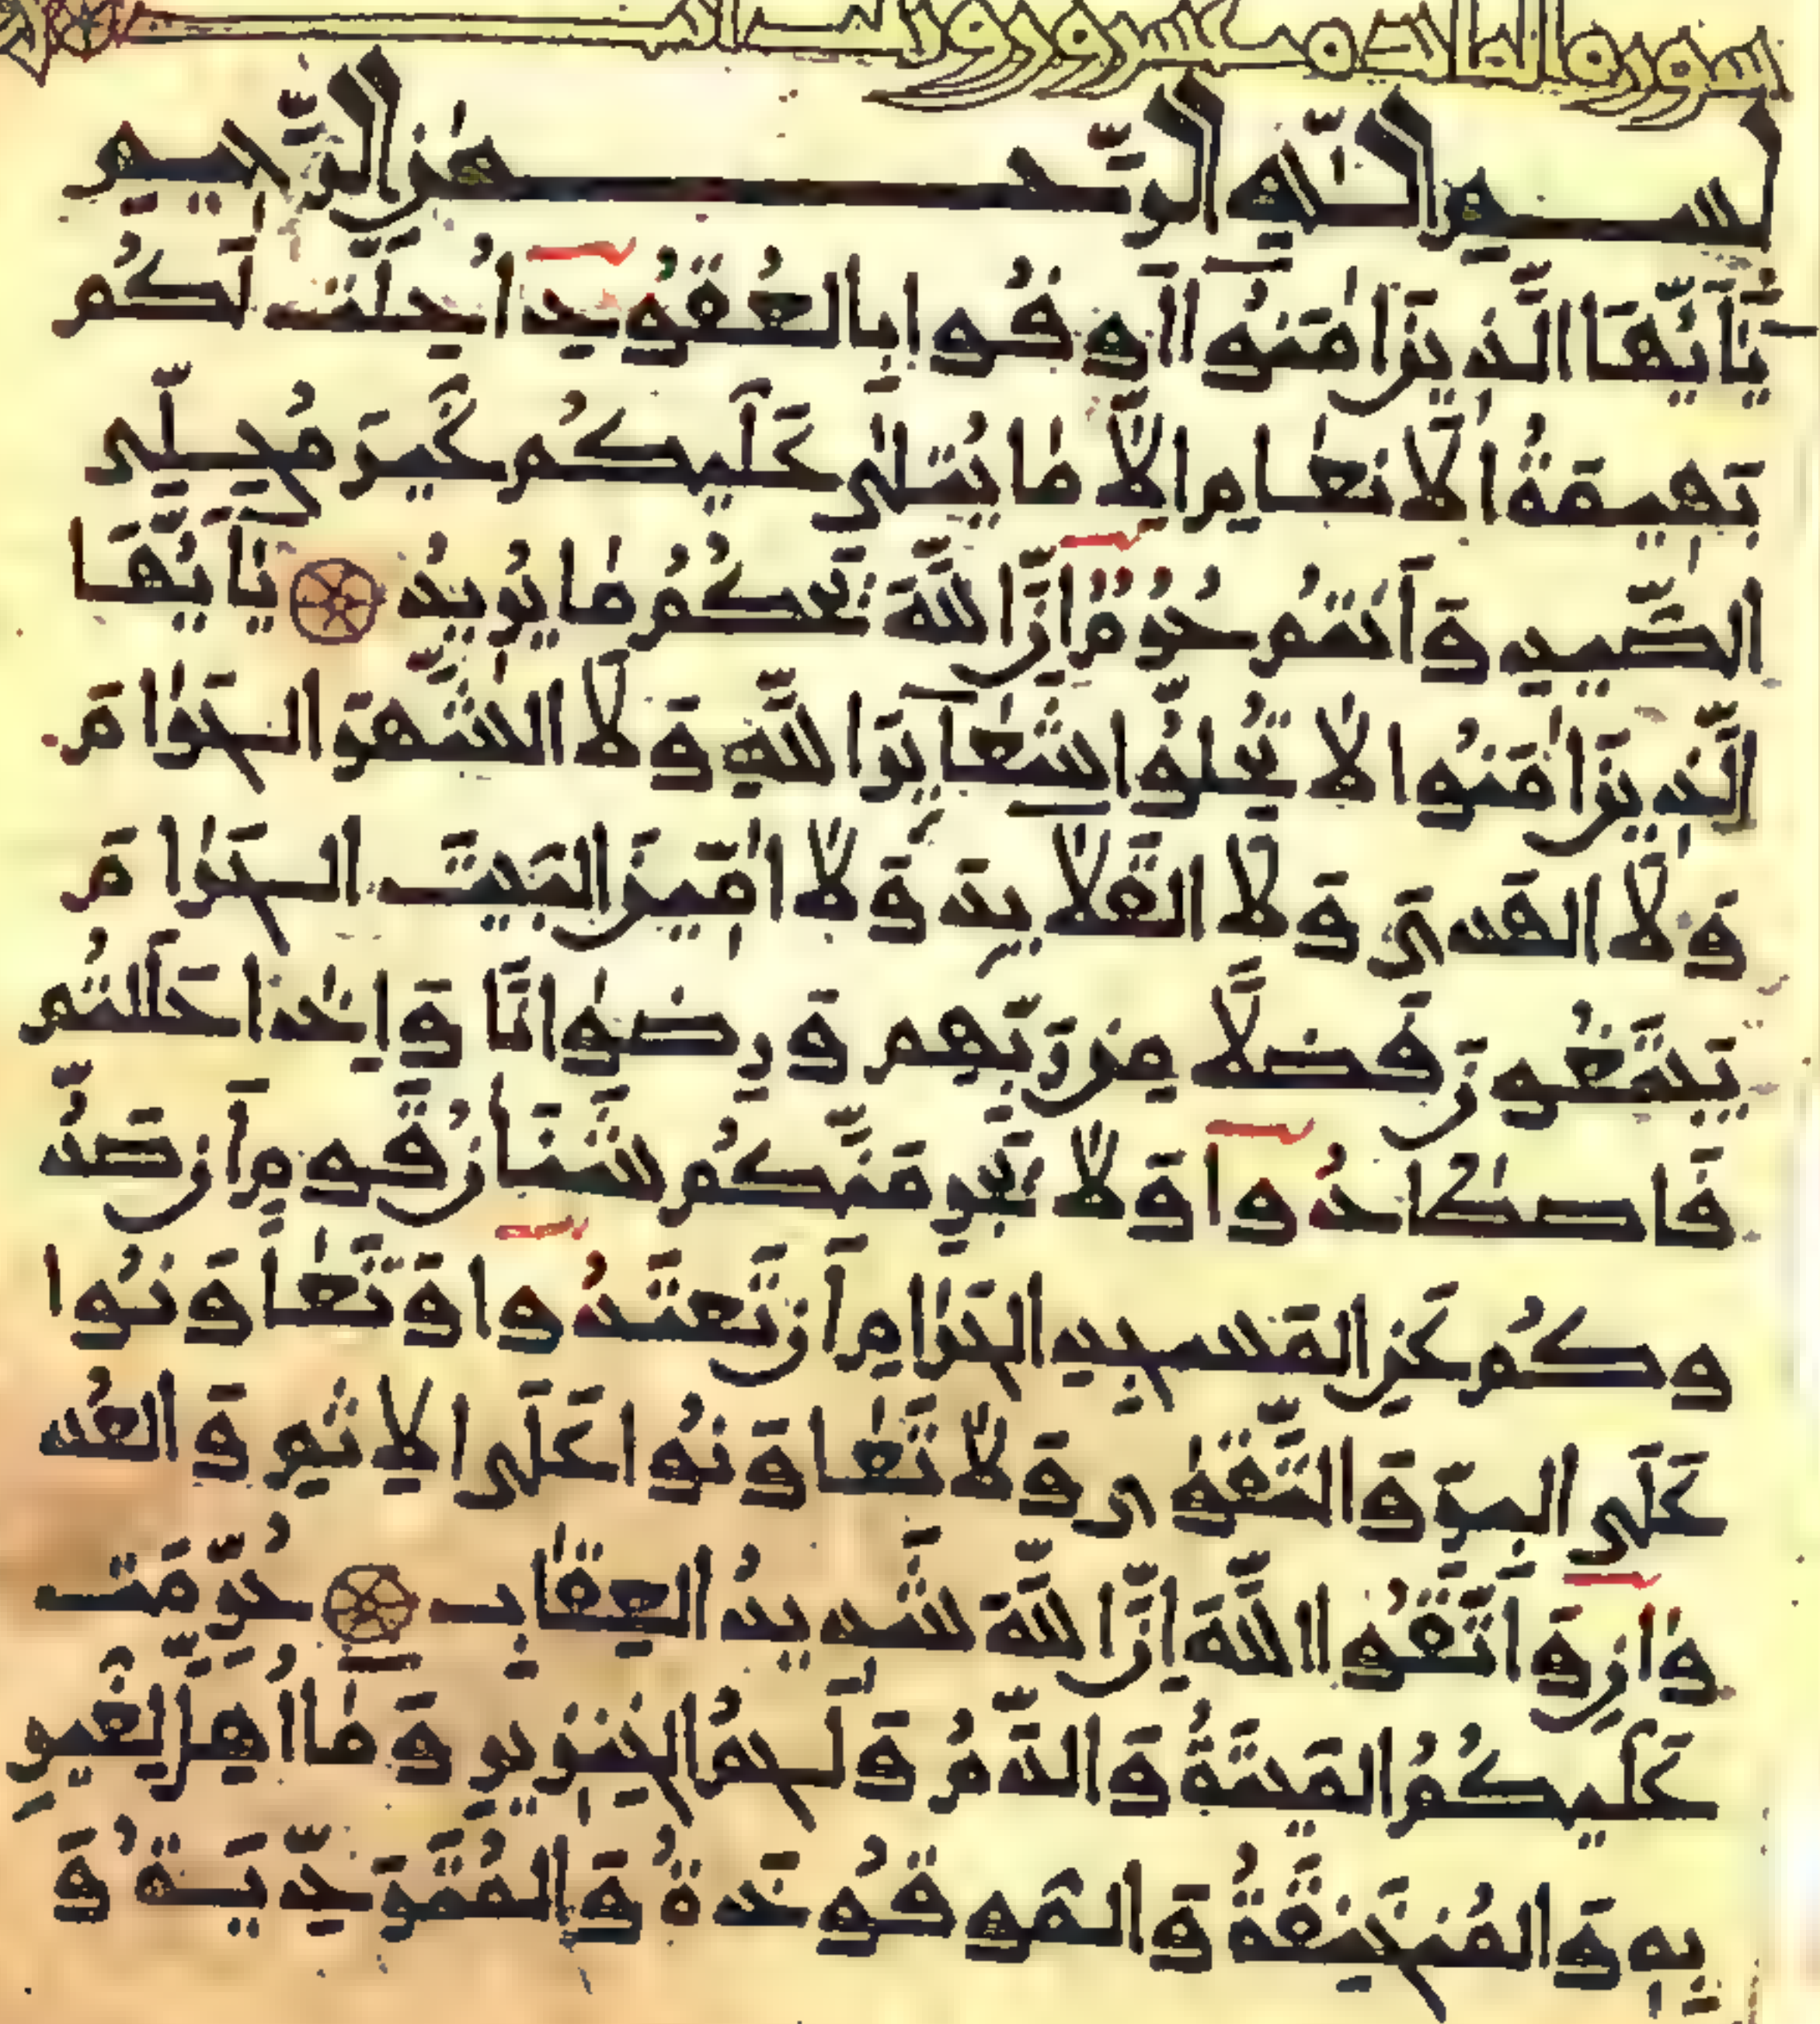 سورة المائدة مية وعشرون اية
بسم الله الرحمن الرحيم
يَٰأَيُّهَا الَّذِينَ اٰمَنُوا أَوفُوا بِالعُقُودِ اُحِلَّت لَكُم
بَهِيمَةُ الأَنعَامِ إِلَّا مَا يُتلَىٰ عَلَيكُم غَيرَ مُحِلِّى
الصَّيدِ وَأَنتُم حُرُمٌ إِنَّ اللَّهَ يَحكُمُ مَا يُرِيدُ يَٰأَيُّهَا
الَّذِينَ اٰمَنُوا لَا تُحِلُّوا شَعَآئِرَ اللَّهِ وَلَا الشَّهرَ الحَرَامَ
وَلَا الهَدىَ وَلَا القَلَائِدَ وَلَا اٰمِّينَ البَيتَ الحَرَامَ
يَبتَغُونَ فَضلًا مِن رَبِّهِم وَرِضوَانًا وَإِذَا حَلَلتُم
فَاصطَادُوا وَلَا يَجرِمَنَّكُم شَنَـَٔانُ قَومٍ أَن صَدُّ
وكُم عَنِ المَسجِدِ الحَرَامِ أَن تَعتَدُوا وَتَعَاوَنُوا
عَلَى البِرِّ وَالتَّقوٰى وَلَا تَعَاوَنُوا عَلَى الإِثمِ وَالعُد
وَانِ وَاتَّقُوا اللَّهَ إِنَّ اللَّهَ شَدِيدُ العِقَابِ حُرِّمَت
عَلَيكُمُ المَيتَةُ وَالدَّمُ وَلَحمُ الخِنزِيرِ وَمَا اُهِلَّ لِغَيرِ
بِهِ وَالمُنخَنِقَةُ وَالمَوقُوذَةُ وَالمُتَرَدِّيَةُ وَ